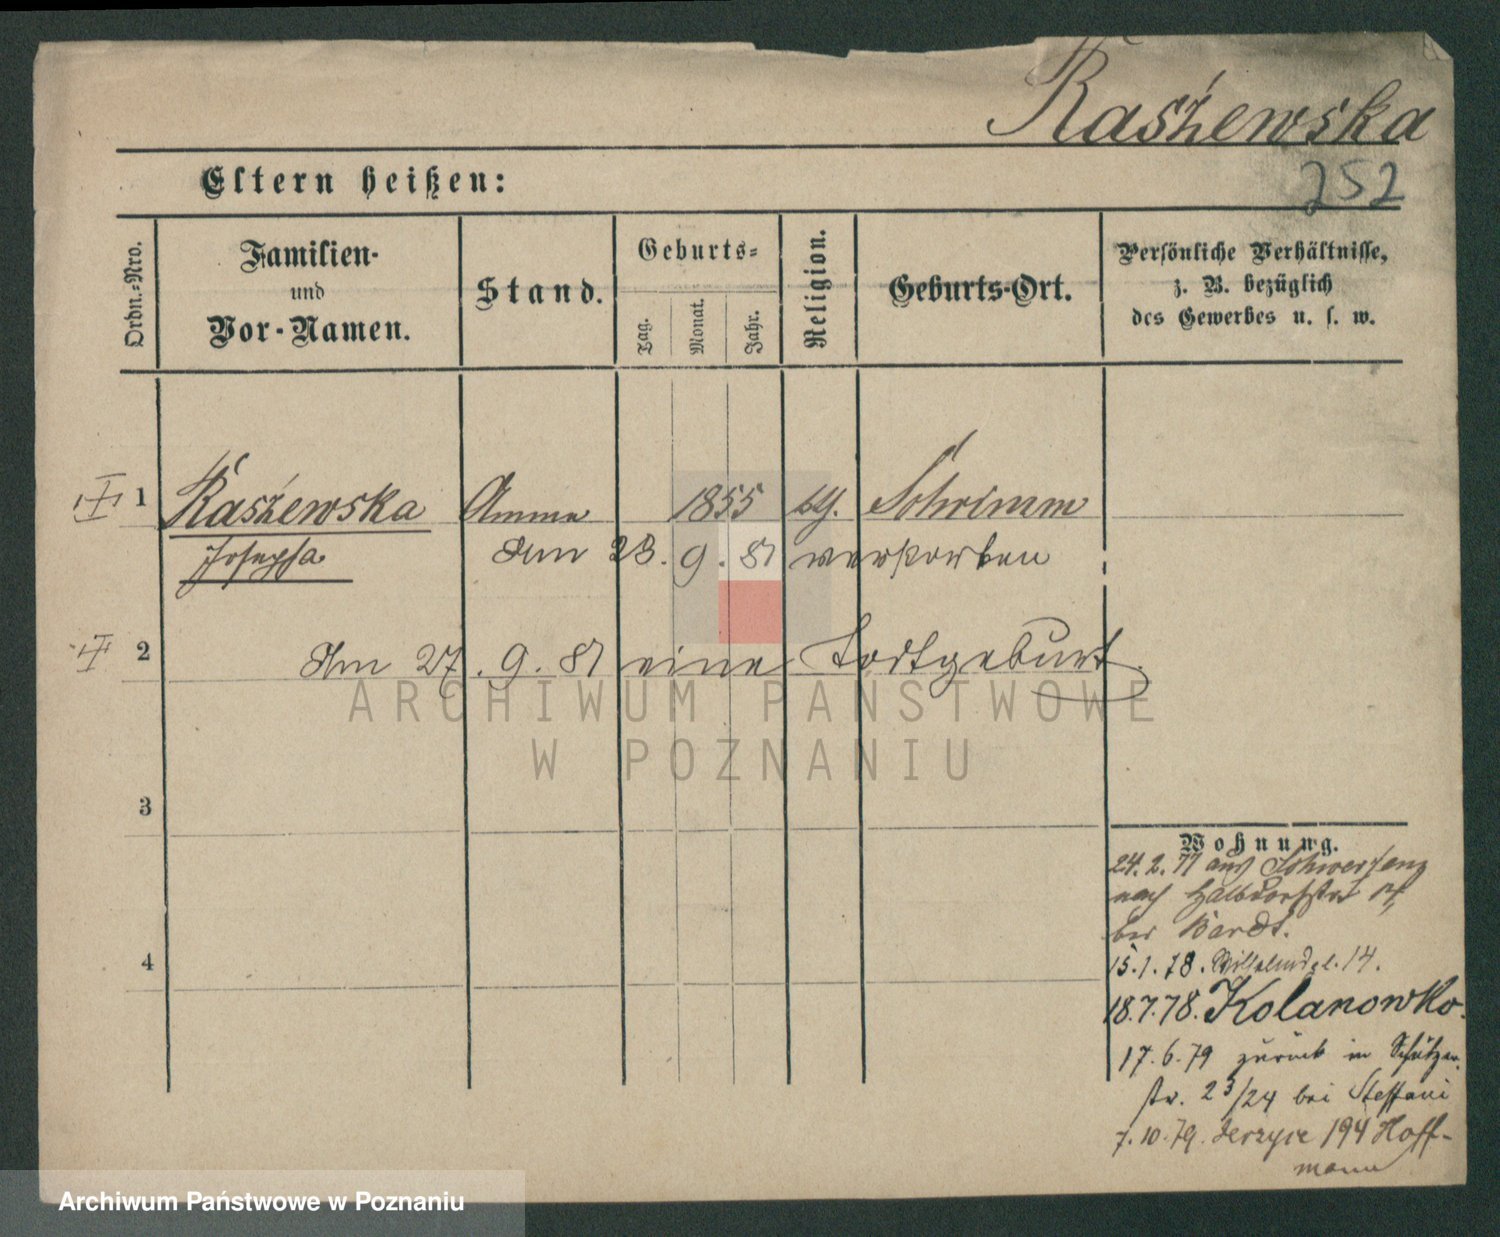 Raszewska
252
Eltern heißen:
Ordn.-Nro.
Familien-
und
Vor-Namen.
Stand.
Geburts-
Tag.
Monat.
Jahr.
Religion.
Geburts-Ort.
Persönliche Verhältnisse,
z. B. bezüglich
des Gewerbes u. s. w.
1 Raszewska Amme 1855 Schrimm
Josepha Am 23. 9. 81 verstorben
2 Am 27. 9. 81 eine Todtgeburt.
ARCHIWUM PAŃSTWOWE
W POZNANIU
3
4
Wohnung.
24. 2. 77 aus Schwersenz
nach Halbdorfstr
bei Bardt.
15. 1. 78. Wilhelmspl. 14.
18. 7. 78. Kolanowko.
17. 6. 79 zurück in Schützen
str. 23/24 bei Steffani
7. 10. 79. Jerzyce 194 Hoff-
mann
Archiwum Państwowe w Poznaniu